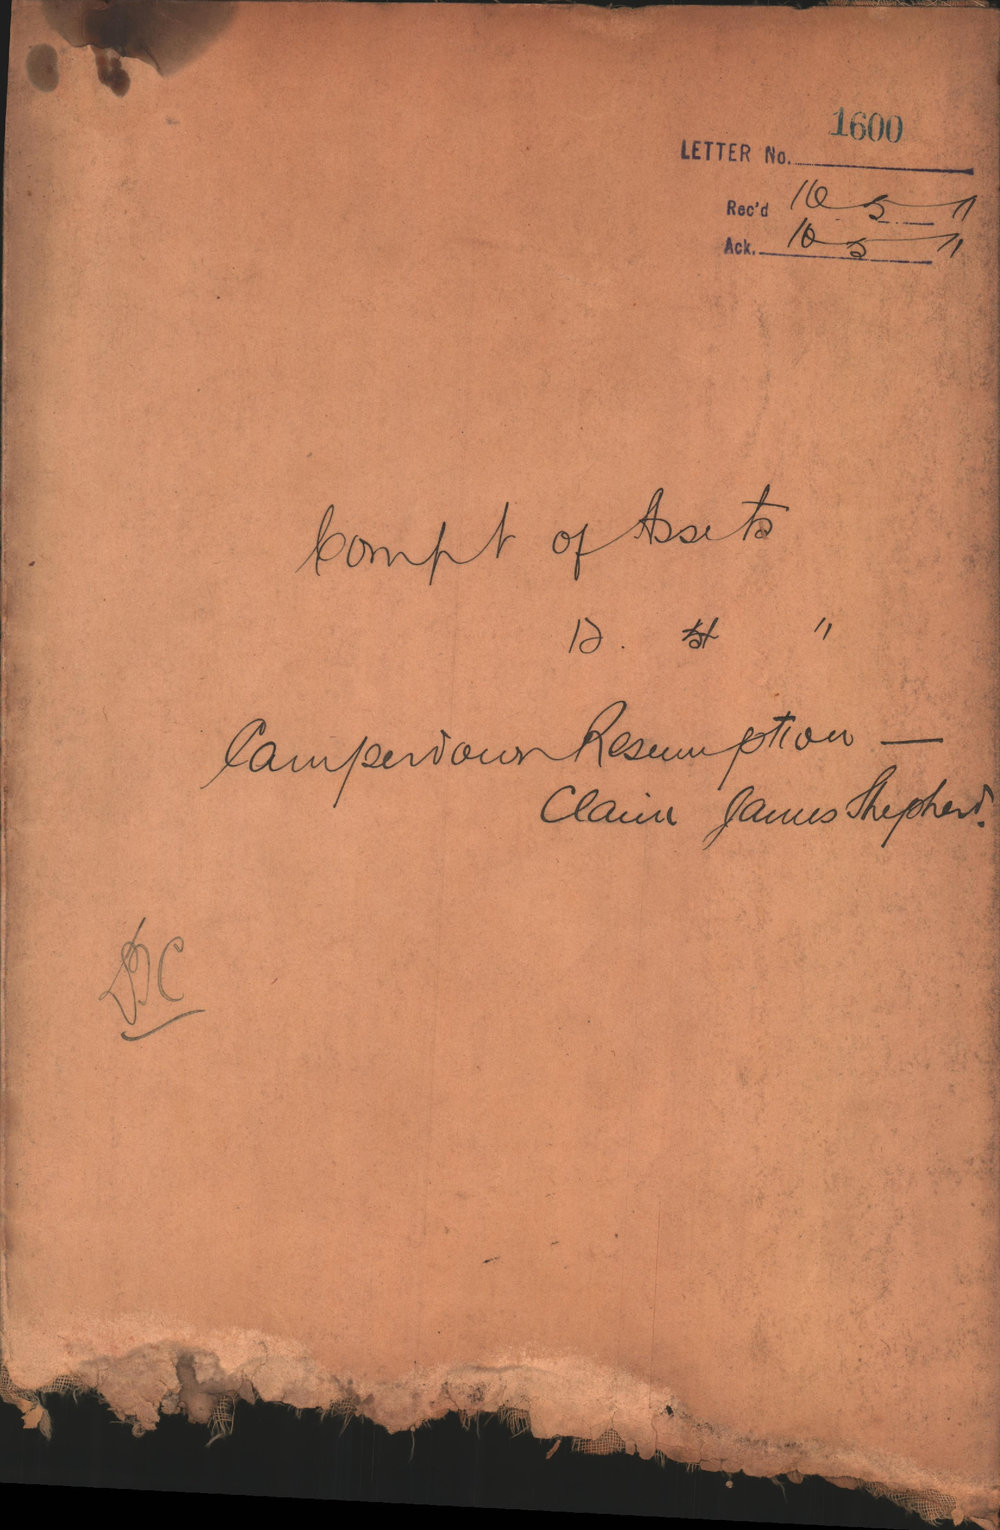 1600
LETTER No.
Rec'd 10-5-11
Ack. 10-5-11
Compt of Assets
"
Camperdown Resumption —
Claim James Shepherd.